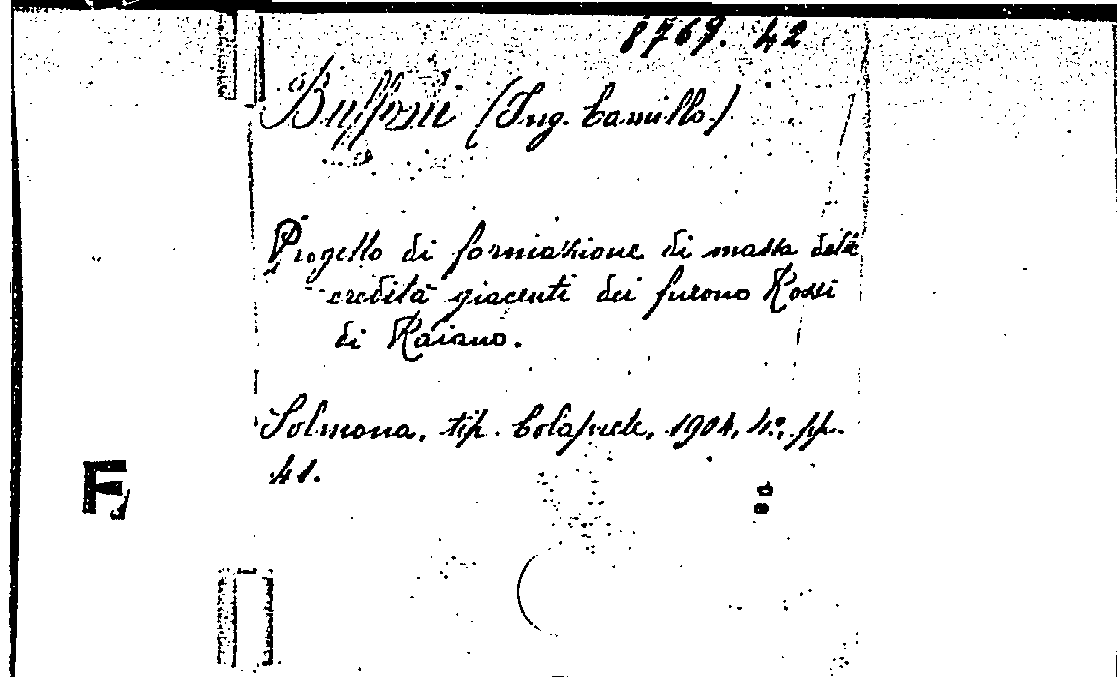 8769. 42
Buffoni (Ing. Camillo)
Progetto di formazione di massa delle
eredità giacenti dei furono Rossi
di Raiano.
Solmona, tip. Colaprete, 1904, 4º, pp.
41.